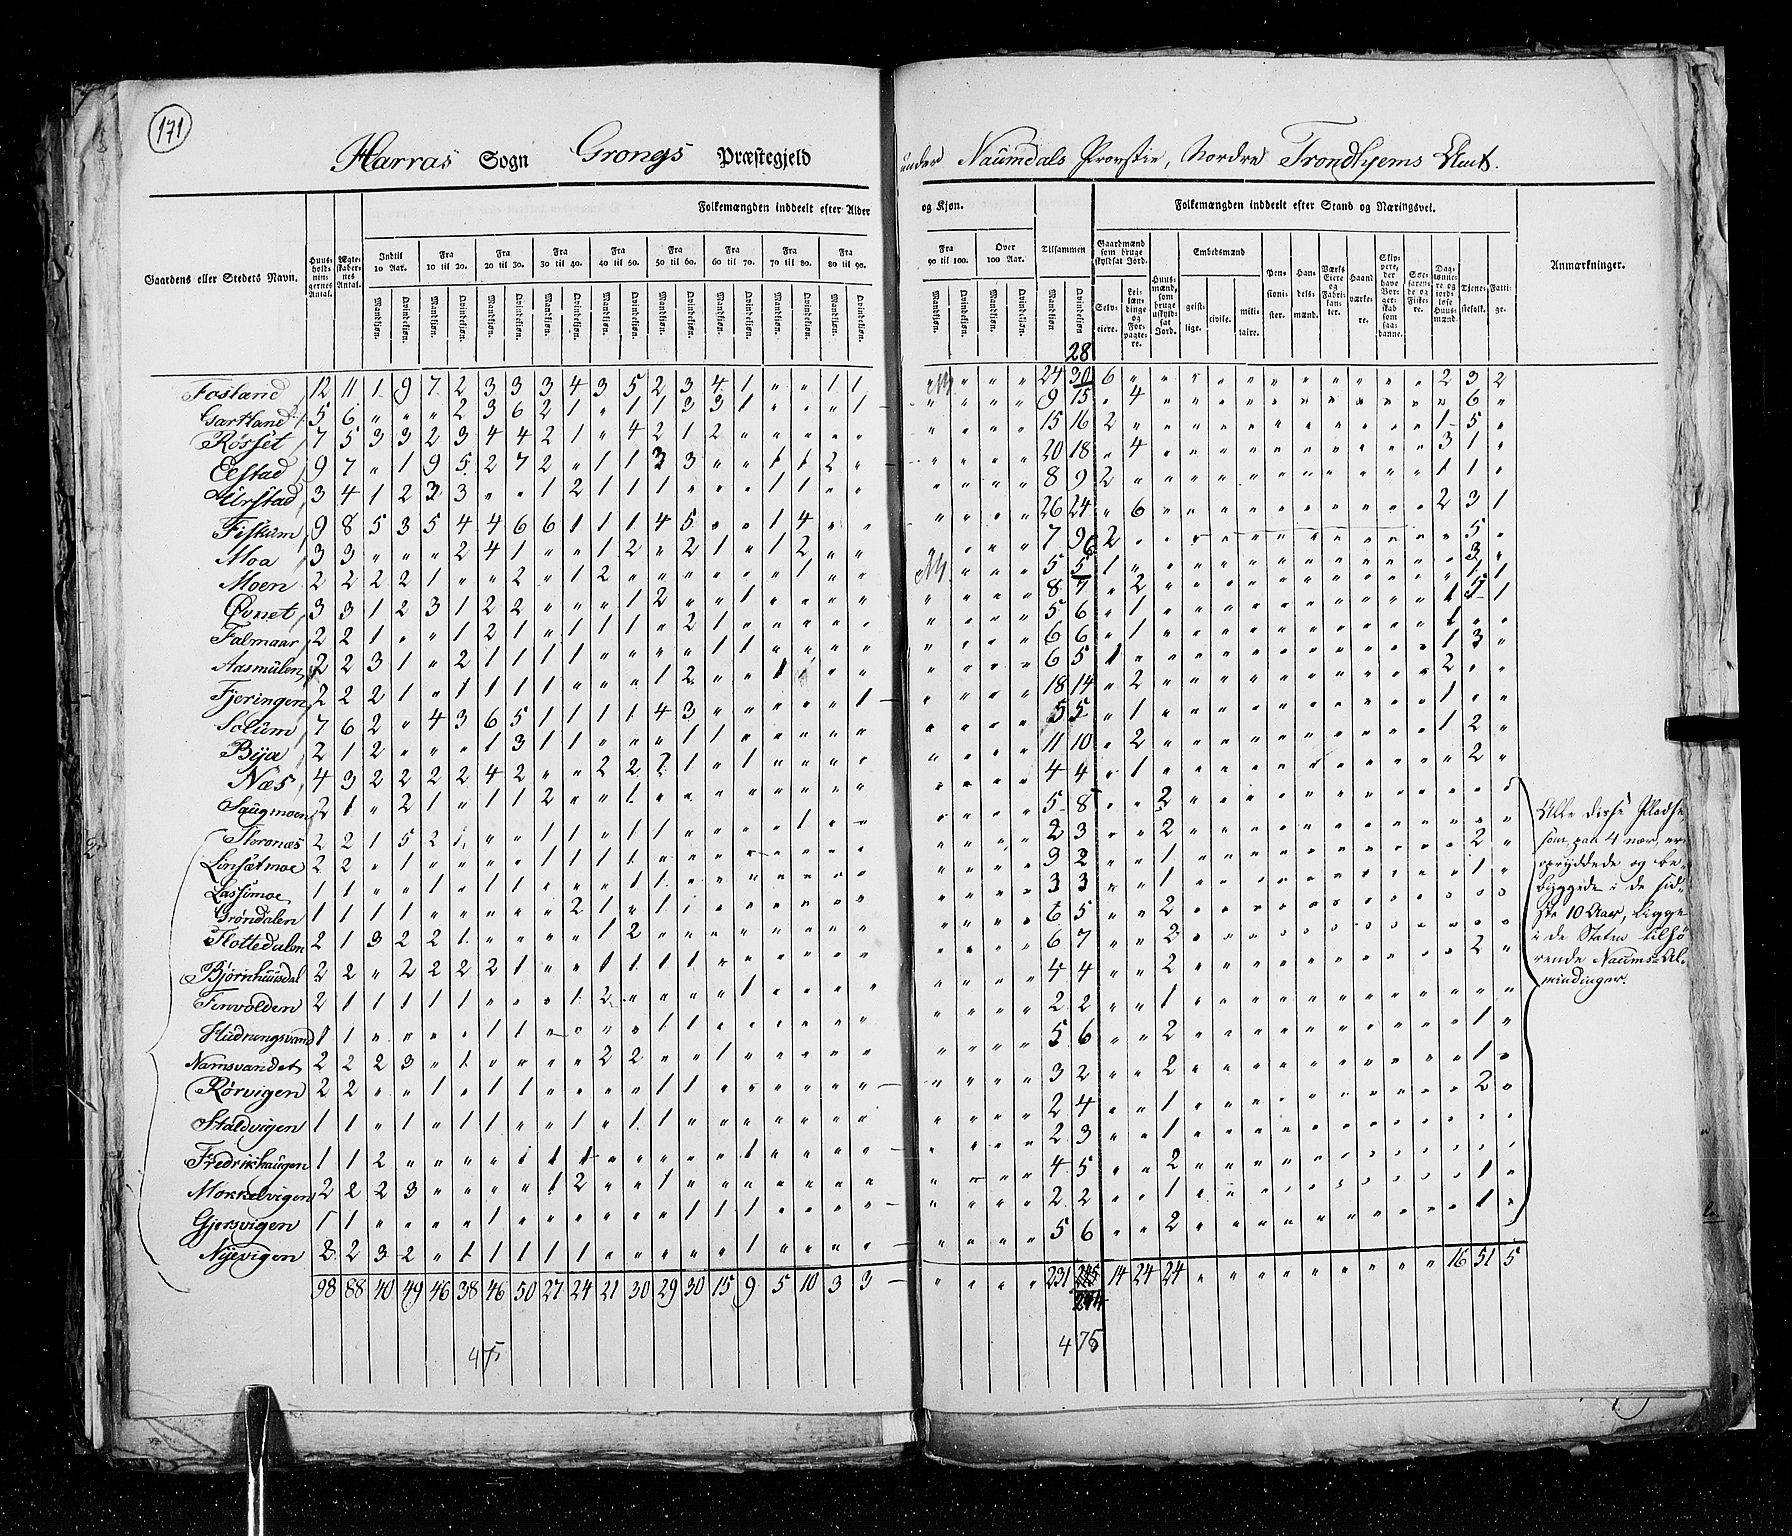 171
Harras Sogn Grongs Præstegjeld
under Naumdals Provstie, Nordre Trondhjems Amt.
Gaardens eller Stedets Navn.
Huus-holdnin-gernes Antal.
Ægte-skaber-nes Antal.
Folkemængden inddeelt efter Alder
og Kjøn.
Indtil 10 Aar.
Fra 10 til 20.
Fra 20 til 30.
Fra 30 til 40.
Fra 40 til 50.
Fra 50 til 60.
Fra 60 til 70.
Fra 70 til 80.
Fra 80 til 90.
Fra 90 til 100.
Over 100 Aar.
Tilsammen
Mandkjøn. Qvindekjøn.
Folkemængden inddeelt efter Stand og Næringsvei.
Gaardmænd som bruge skyldsat Jord.
Selv-eiere.
Lei-læn-dinge og For-pagte-re.
Huus-mænd, som bruge uskyld-sat Jord.
Embedsmænd
geist-lige.
civile.
mili-taire.
Pen-sioni-ster.
Han-dels-mænd.
Værks Eiere og Fabri-kan-ter.
Haand værke-re.
Skip-pere, der have Bor-ger-skab som saa-danne.
Søe-farende og Fiske-re.
Dag-lønne-re og jord-løse Huus-mænd.
Tjene-stefolk.
Fatti-ge.
Anmærkninger.
28
Fosland 12 11 1 9 7 2 3 3 3 4 3 5 2 3 4 1 " " 1 1 " " " 24 30 6 " " " " " " " " " " " 2 3 2
Gartland 5 6 " " " 2 3 6 2 1 " 1 1 3 3 1 " " " 1 " " " " 9 15 " 4 " " " " " " " " " " " 6 "
Rosset 7 5 3 3 2 3 4 4 2 1 " 4 2 1 2 " " " " " " " " " 15 16 2 " " " " " " " " " " " 1 5 "
Elstad 9 7 " 1 9 5 2 7 2 " 1 1 3 3 " " 1 1 2 " " " " " 20 18 " 4 " " " " " " " " " " 3 1 "
Aurstad 3 4 1 2 3 3 " " 1 2 1 1 1 " " " 1 1 " " " " " " 8 9 2 " " " " " " " " " " " 1 1 "
Fiskum 9 8 5 3 5 4 4 6 6 1 1 1 4 5 " " 1 4 " " " " " " 26 24 " 6 " " " " " " " " " " 2 3 1
Moa 3 3 " " " 2 4 1 " " 1 2 " 2 1 " 1 2 " " " " " " 7 9 2 " " " " " " " " " " " " 5 "
Moen 2 2 2 2 1 " " 2 " 1 2 " " " " " " 1 " " " " " 5 5 1 " " " " " " " " " " " " 3 "
Øvnet 3 3 1 2 3 1 2 2 " " " 1 2 " " 1 " " " " " " " " 8 7 " 2
Falmaar 2 2 1 " " 1 2 1 " 1 1 1 " 2 1 " " " " " " " " " 5 6 " 1
Aasmulen 2 2 3 1 " 2 1 1 1 1 " " " " 1 1 " " " " " " " " 6 6 " 1
Fjeringen 2 2 2 1 " 1 1 1 1 " " " 1 2 " " 1 " " " " " " " 6 5 1
Solum 7 6 2 " 4 3 6 5 1 1 1 1 4 3 " " " " " 1 " " " " 18 14 " 2
Bya 2 1 2 " " " 1 3 1 1 " " " 1 1 " " " " " " " " " 5 5 " 1
Næs 4 3 2 2 2 2 4 2 " " 2 2 2 1 " 1 " " " " " " " " 11 10 " 2
Saugmoen 2 1 " 2 1 " 1 1 2 " " 1 " " " " " " " " " " " " 4 4 " 1
Steronæs 2 2 1 5 2 1 " " 1 1 " 1 1 " " " " 1 " " " " " " 5 8 " " 2
Linsætmoe 2 2 " 1 " " " " 1 1 1 1 " " " " " " " " " " " " 2 3 " " 2
Lassemoe 1 1 " " 1 " 1 1 " " " 1 1 " " " " " " " " " " " 3 2 " " 1
Grøndalen 1 1 1 1 " " " " " 2 1 " 1 " " " " " " " " " " " 3 3 " " 1
Flottedalen 2 1 3 2 2 1 " " " " 1 2 " " " " " " " " " " " " 6 5 " " 2
Bjørnhuusdal 2 2 " 2 2 2 2 1 " " 1 1 1 1 " " " " " " " " " " 6 7 " " 2
Finvolden 2 1 1 1 1 1 " " " 1 2 " " " " 1 " " " " " " " " 4 4 " " 2
Hudrungsvand 1 1 " " " " 1 1 " " " " 1 1 " " " " " " " " " " 2 2 " " 1
Namsvandet 2 2 2 3 " 1 " " " " 2 2 " " 1 " " " " " " " " " 5 6 " " 2
Rørvigen 2 2 " " 1 " 1 1 " " " " 1 1 " " " " " " " " " " 3 2 " " 2
Staldvigen 1 1 " 1 " 1 1 1 " 1 " 1 1 " " " " " " " " " " " 2 4 " " 1
Fredrikhaugen 1 1 2 " " " " 1 1 1 " " " " " 1 " " " " " " " " 2 3 " " 1
Møkkelvigen 2 2 2 3 " " " " 1 2 " " 1 " " " " " " " " " " " 4 5 " " 2
Gjersvigen 1 1 " " " " 1 " " " " " " 1 1 1 " " " " " " " " 2 2 " " 1
Nyevigen 2 2 3 2 " 1 1 1 1 1 " " " " " 1 " " " " " " " " 5 6 " " 2
98 88 40 49 46 38 46 50 27 24 21 30 29 30 15 9 5 10 3 3 " " " " 231 14 24 24 " " " " " " " " " 16 51 5
244
475
475
Alle disse Pladse
som paa 4 nær, ere
opryddede og be-
byggede i de sid-
ste 10 Aar, ligge
i de Staten tilhø
rende Naums-Al-
mindinger.